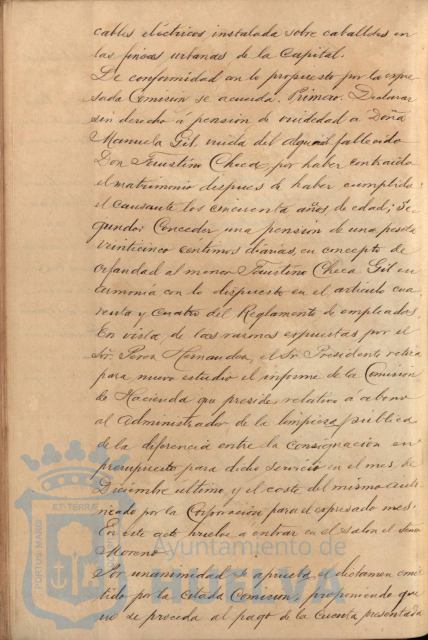 cables eléctricos instalada sobre caballetes en
las fincas urbanas de la Capital.
De conformidad con lo propuesto por la expre
sada Comision se acuerda. Primero. Declarar
sin derecho á pensión de viudedad a Doña
Manuela Gil viuda del alguacil fallecido
Don Faustino Checa, por haber contraido
el matrimonio despues de haber cumplido
el causante los cincuenta años de edad; Se
gundo: Conceder una pension de una peseta
veinticinco centimos diarias, en concepto de
orfandad al menor Faustino Checa Gil en
armonia con lo dispuesto en el articulo cua
renta y cuatro del Reglamento de empleados.
En vista de las razones expuestas por el
Sr. Perez Hernandez, el Sr. Presidente retira
para nuevo estudio el informe de la Comision
de Hacienda que preside relativo a abono
al Administrador de la limpieza pública
de la diferencia entre la consignacion en
presupuesto para dicho servicio en el mes de
Diciembre ultimo, y el coste del mismo auto
rizado por la Corporacion para el expresado mes.
En este acto vuelve a entrar en el salon el señor
Moreno
Por unanimidad se aprueba el dictamen emi
tido por la citada Comision, proponiendo que
no se proceda al pago de la cuenta presentada
PORTUS MARIS
ET TERRAE
Ayuntamiento de
HUELVA